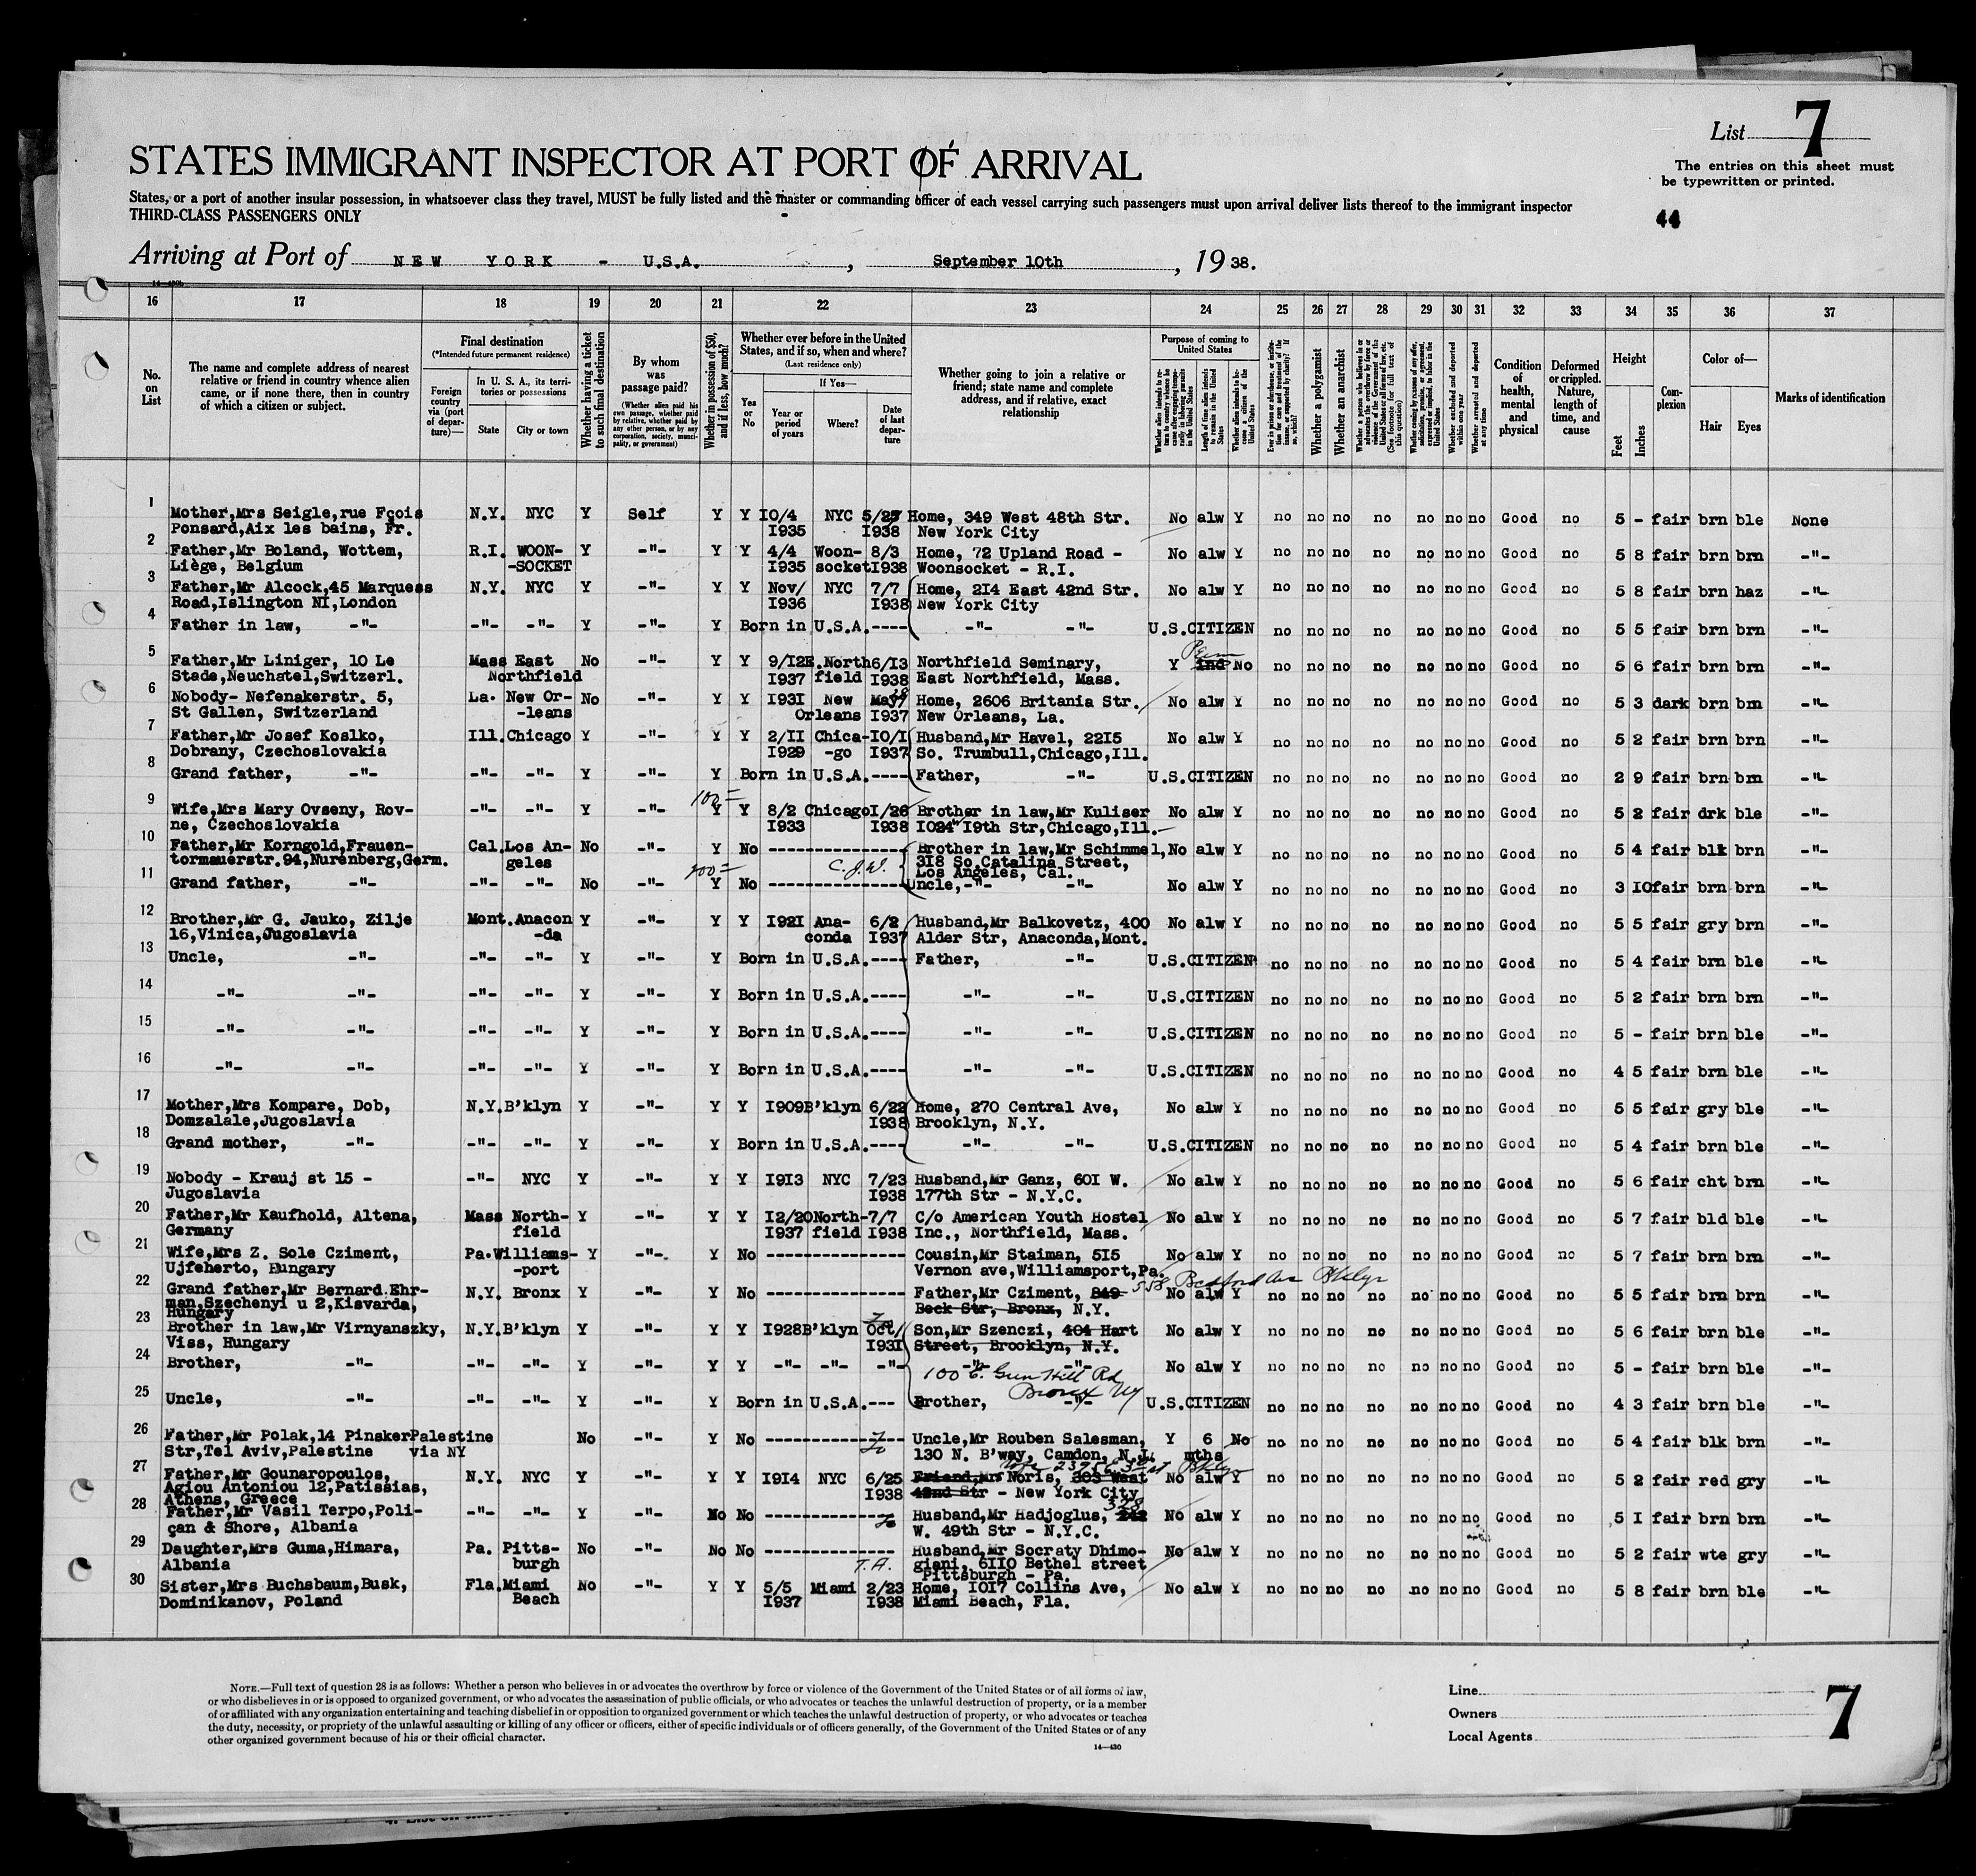 List 7
STATES IMMIGRANT INSPECTOR AT PORT OF ARRIVAL
The entries on this sheet must
be typewritten or printed.
States, or a port of another insular possession, in whatsoever class they travel, MUST be fully listed and the master or commanding officer of each vessel carrying such passengers must upon arrival deliver lists thereof to the immigrant inspector
THIRD-CLASS PASSENGERS ONLY
44
Arriving at Port of NEW YORK - U.S.A. , September 10th , 19 38.
16 17 18 19 20 21 22 23 24 25 26 27 28 29 30 31 32 33 34 35 36 37
No. on List
The name and complete address of nearest
relative or friend in country whence alien
came, or if none there, then in country
of which a citizen or subject.
Final destination
(*Intended future permanent residence)
Foreign country via (port of departure)—
In U. S. A., its territories or possessions
State City or town
Whether having a ticket to such final destination
By whom was passage paid?
(Whether alien paid his own passage, whether paid by relative, whether paid by any other person, or by any corporation, society, municipality, or government)
Whether in possession of $50, and if less, how much?
Whether ever before in the United States, and if so, when and where?
(Last residence only)
Yes or No
If Yes—
Year or period of years
Where?
Date of last departure
Whether going to join a relative or
friend; state name and complete
address, and if relative, exact
relationship
Purpose of coming to United States
Whether a polygamist
Whether an anarchist
Condition of health, mental and physical
Deformed or crippled. Nature, length of time, and cause
Height
Feet Inches
Complexion
Color of—
Hair Eyes
Marks of identification
1 Mother,Mrs Seigle,rue Fçois N.Y. NYC Y Self Y Y IO/4 NYC 5/25 Home, 349 West 48th Str. No alw Y no no no no no no no Good no 5 - fair brn ble None
Ponsard,Aix les bains, Fr. I935 I938 New York City
2 Father,Mr Boland, Wottem, R.I. WOON- Y -"- Y Y 4/4 Woon- 8/3 Home, 72 Upland Road - No alw Y no no no no no no no Good no 5 8 fair brn brn -"-
Liège, Belgium -SOCKET I935 socket I938 Woonsocket - R.I.
3 Father,Mr Alcock,45 Marquess N.Y. NYC Y -"- Y Y Nov/ NYC 7/7 Home, 2I4 East 42nd Str. No alw Y no no no no no no no Good no 5 8 fair brn haz -"-
Road,Islington NI,London I936 I938 New York City
4 Father in law, -"- -"- -"- Y -"- Y Born in U.S.A.---- -"- -"- U.S.CITIZEN no no no no no no no Good no 5 5 fair brn brn -"-
5 Father,Mr Liniger, 10 Le Mass East No -"- Y Y 9/I2 E.North 6/I3 Northfield Seminary, Y ind No no no no no no no no Good no 5 6 fair brn brn -"-
Stade,Neuchatel,Switzerl. Northfield I937 field I938 East Northfield, Mass.
6 Nobody- Nefenakerstr. 5, La. New Or- No -"- Y Y I93I New May Home, 2606 Britania Str. No alw Y no no no no no no no Good no 5 3 dark brn brn -"-
St Gallen, Switzerland -leans Orleans I937 New Orleans, La.
7 Father,Mr Josef Koslko, Ill. Chicago Y -"- Y Y 2/II Chica- IO/I Husband,Mr Havel, 22I5 No alw Y no no no no no no no Good no 5 2 fair brn brn -"-
Dobrany, Czechoslovakia I929 -go I937 So. Trumbull,Chicago,Ill.
8 Grand father, -"- -"- -"- Y -"- Y Born in U.S.A.---- Father, -"- U.S.CITIZEN no no no no no no no Good no 2 9 fair brn brn -"-
100=
9 Wife,Mrs Mary Ovseny, Rov- -"- -"- Y -"- Y Y 8/2 Chicago I/26 Brother in law,Mr Kuliser No alw Y no no no no no no no Good no 5 2 fair drk ble -"-
ne, Czechoslovakia I933 I938 I024 I9th Str,Chicago,Ill.
10 Father,Mr Korngold,Frauen- Cal. Los An- No -"- Y No --------------- Brother in law,Mr Schimmel, No alw Y no no no no no no no Good no 5 4 fair blk brn -"-
tormauerstr.94,Nurenberg,Germ. geles 3I8 So Catalina Street,
C.J.W. Los Angeles, Cal.
11 Grand father, -"- -"- -"- No -"- Y No --------------- Uncle,-"- -"- No alw Y no no no no no no no Good no 3 IO fair brn brn -"-
12 Brother,Mr G. Jauko, Zilje Mont. Anacon Y -"- Y Y I92I Ana- 6/2 Husband,Mr Balkovetz, 400 No alw Y no no no no no no no Good no 5 5 fair gry brn -"-
16,Vinica,Jugoslavia -da conda I937 Alder Str, Anaconda,Mont.
13 Uncle, -"- -"- -"- Y -"- Y Born in U.S.A.---- Father, -"- U.S.CITIZEN no no no no no no no Good no 5 4 fair brn ble -"-
14 -"- -"- -"- -"- Y -"- Y Born in U.S.A.---- -"- -"- U.S.CITIZEN no no no no no no no Good no 5 2 fair brn brn -"-
15 -"- -"- -"- -"- Y -"- Y Born in U.S.A.---- -"- -"- U.S.CITIZEN no no no no no no no Good no 5 - fair brn ble -"-
16 -"- -"- -"- -"- Y -"- Y Born in U.S.A.---- -"- -"- U.S.CITIZEN no no no no no no no Good no 4 5 fair brn ble -"-
17 Mother,Mrs Kompare, Dob, N.Y. B'klyn Y -"- Y Y I909 B'klyn 6/22 Home, 270 Central Ave, No alw Y no no no no no no no Good no 5 5 fair gry ble -"-
Domzalale,Jugoslavia I938 Brooklyn, N.Y.
18 Grand mother, -"- -"- -"- Y -"- Y Born in U.S.A.---- -"- -"- U.S.CITIZEN no no no no no no no Good no 5 4 fair brn ble -"-
19 Nobody - Krauj st 15 - -"- NYC Y -"- Y Y I9I3 NYC 7/23 Husband,Mr Ganz, 60I W. No alw Y no no no no no no no Good no 5 6 fair cht brn -"-
Jugoslavia I938 177th Str - N.Y.C.
20 Father,Mr Kaufhold, Altena, Mass North- Y -"- Y Y I2/20 North- 7/7 C/o American Youth Hostel No alw Y no no no no no no no Good no 5 7 fair bld ble -"-
Germany field I937 field I938 Inc., Northfield, Mass.
21 Wife,Mrs Z. Sole Cziment, Pa. Williams- Y -"- Y No --------------- Cousin,Mr Staiman, 5I5 No alw Y no no no no no no no Good no 5 7 fair brn brn -"-
Ujfeherto, Hungary -port Vernon ave,Williamsport,Pa.
558 Bedford Av Bklyn
22 Grand father,Mr Bernard Ehr- N.Y. Bronx Y -"- Y No --------------- Father,Mr Cziment, 849 No alw Y no no no no no no no Good no 5 5 fair brn brn -"-
man,Szechenyi u 2,Kisvarda, Beck Str, Bronx, N.Y.
Hungary
23 Brother in law,Mr Virnyanszky, N.Y. B'klyn Y -"- Y Y I928 B'klyn Oct/ Son,Mr Szenczi, 404 Hart No alw Y no no no no no no no Good no 5 6 fair brn ble -"-
Viss, Hungary I93I Street, Brooklyn, N.Y.
24 Brother, -"- -"- -"- Y -"- Y Y -"- -"- -"- -"- -"- No alw Y no no no no no no no Good no 5 - fair brn ble -"-
100 E. Gun Hill Rd
Bronx NY
25 Uncle, -"- -"- -"- Y -"- Y Born in U.S.A.--- Brother, -"- U.S.CITIZEN no no no no no no no Good no 4 3 fair brn ble -"-
26 Father,Mr Polak,14 Pinsker Palestine No -"- Y No --------------- Uncle,Mr Rouben Salesman, Y 6 No no no no no no no no Good no 5 4 fair blk brn -"-
Str,Tel Aviv,Palestine via NY 130 N. B'way, Camdon, N.J. mths
27 Father,Mr Gounaropoulos, N.Y. NYC Y -"- Y Y I9I4 NYC 6/25 Friend,Mrs Noris, 303 West No alw Y no no no no no no no Good no 5 2 fair red gry -"-
Agiou Antoniou 12,Patissias, I938 42nd Str - New York City
Athens, Greece
28 Father,Mr Vasil Terpo,Poli- -"- -"- Y -"- No No --------------- Husband,Mr Hadjoglus, 242 328 No alw Y no no no no no no no Good no 5 I fair brn brn -"-
çan & Shore, Albania W. 49th Str - N.Y.C.
29 Daughter,Mrs Guma,Himara, Pa. Pitts- No -"- No No --------------- Husband,Mr Socraty Dhimo- No alw Y no no no no no no no Good no 5 2 fair wte gry -"-
Albania burgh T.A. giani, 6IIO Bethel street
Pittsburgh - Pa.
30 Sister,Mrs Buchsbaum,Busk, Fla. Miami No -"- Y Y 5/5 Miami 2/23 Home, IOI7 Collins Ave, No alw Y no no no no no no no Good no 5 8 fair brn ble -"-
Dominikanov, Poland Beach I937 I938 Miami Beach, Fla.
NOTE.—Full text of question 28 is as follows: Whether a person who believes in or advocates the overthrow by force or violence of the Government of the United States or of all forms of law,
or who disbelieves in or is opposed to organized government, or who advocates the assassination of public officials, or who advocates or teaches the unlawful destruction of property, or is a member
of or affiliated with any organization entertaining and teaching disbelief in or opposition to organized government or which teaches the unlawful destruction of property, or who advocates or teaches
the duty, necessity, or propriety of the unlawful assaulting or killing of any officer or officers, either of specific individuals or of officers generally, of the Government of the United States or of any
other organized government because of his or their official character.
14—430
Line
Owners
Local Agents
7